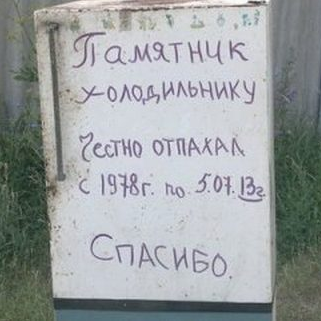 Памятник
холодильнику
Честно отпахал
с 1978г. по 5.07.13г
Спасибо.